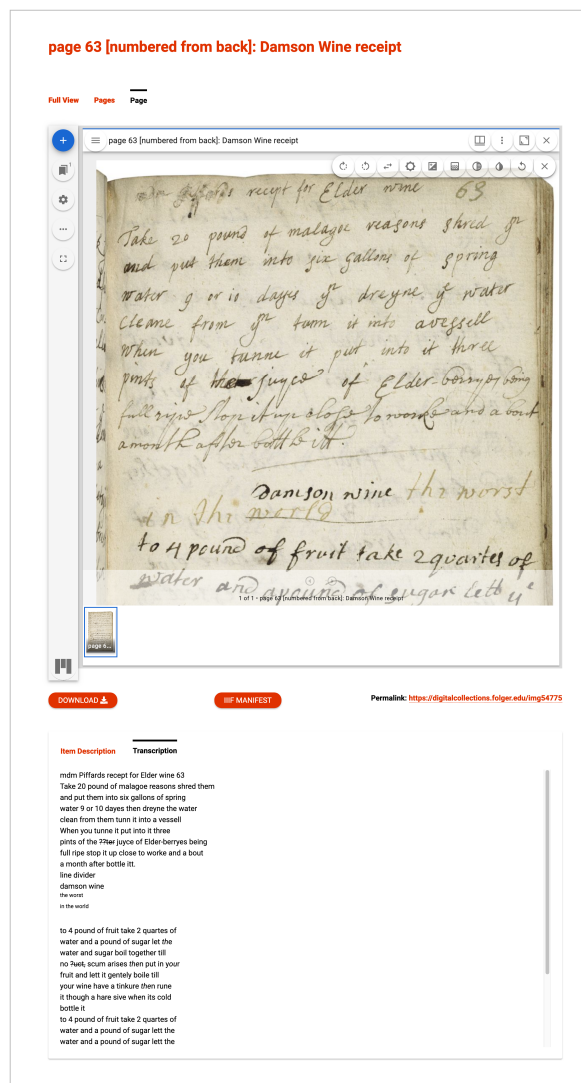 page 63 [numbered from back]: Damson Wine receipt
Full View Pages Page
page 63 [numbered from back]: Damson Wine receipt
mdm Piffards receipt for Elder wine 63
Take 20 pound of malagoe reasons shred ym
and put them into six gallons of spring
water 9 or 10 dayes yn dreyne ye water
cleane from ym tunn it into avessell
When you tunne it put into it three
pints of juyce of Elder-berryes being
full ripe stop it up close to worke and a bout
a month after bottle itt.
Damson wine the worst
in the world
to 4 pound of fruit take 2 quartes of
water and apound of sugar lett ye
1 of 1 • page 63 [numbered from back]: Damson Wine receipt
page 6...
DOWNLOAD
IIIF MANIFEST
Permalink: https://digitalcollections.folger.edu/img54775
Item Description Transcription
mdm Piffards recept for Elder wine 63
Take 20 pound of malagoe reasons shred them
and put them into six gallons of spring
water 9 or 10 dayes then dreyne the water
clean from them turn it into a vessell
When you tunne it put into it three
pints of the ??ter juyce of Elder-berryes being
full ripe stop it up close to worke and a bout
a month after bottle itt.
line divider
damson wine
the worst
in the world
to 4 pound of fruit take 2 quartes of
water and a pound of sugar let the
water and sugar boil together till
no ?uct, scum arises then put in your
fruit and lett it gentely boile till
your wine have a tinkure then rune
it though a hare sive when its cold
bottle it
to 4 pound of fruit take 2 quartes of
water and a pound of sugar lett the
water and a pound of sugar lett the